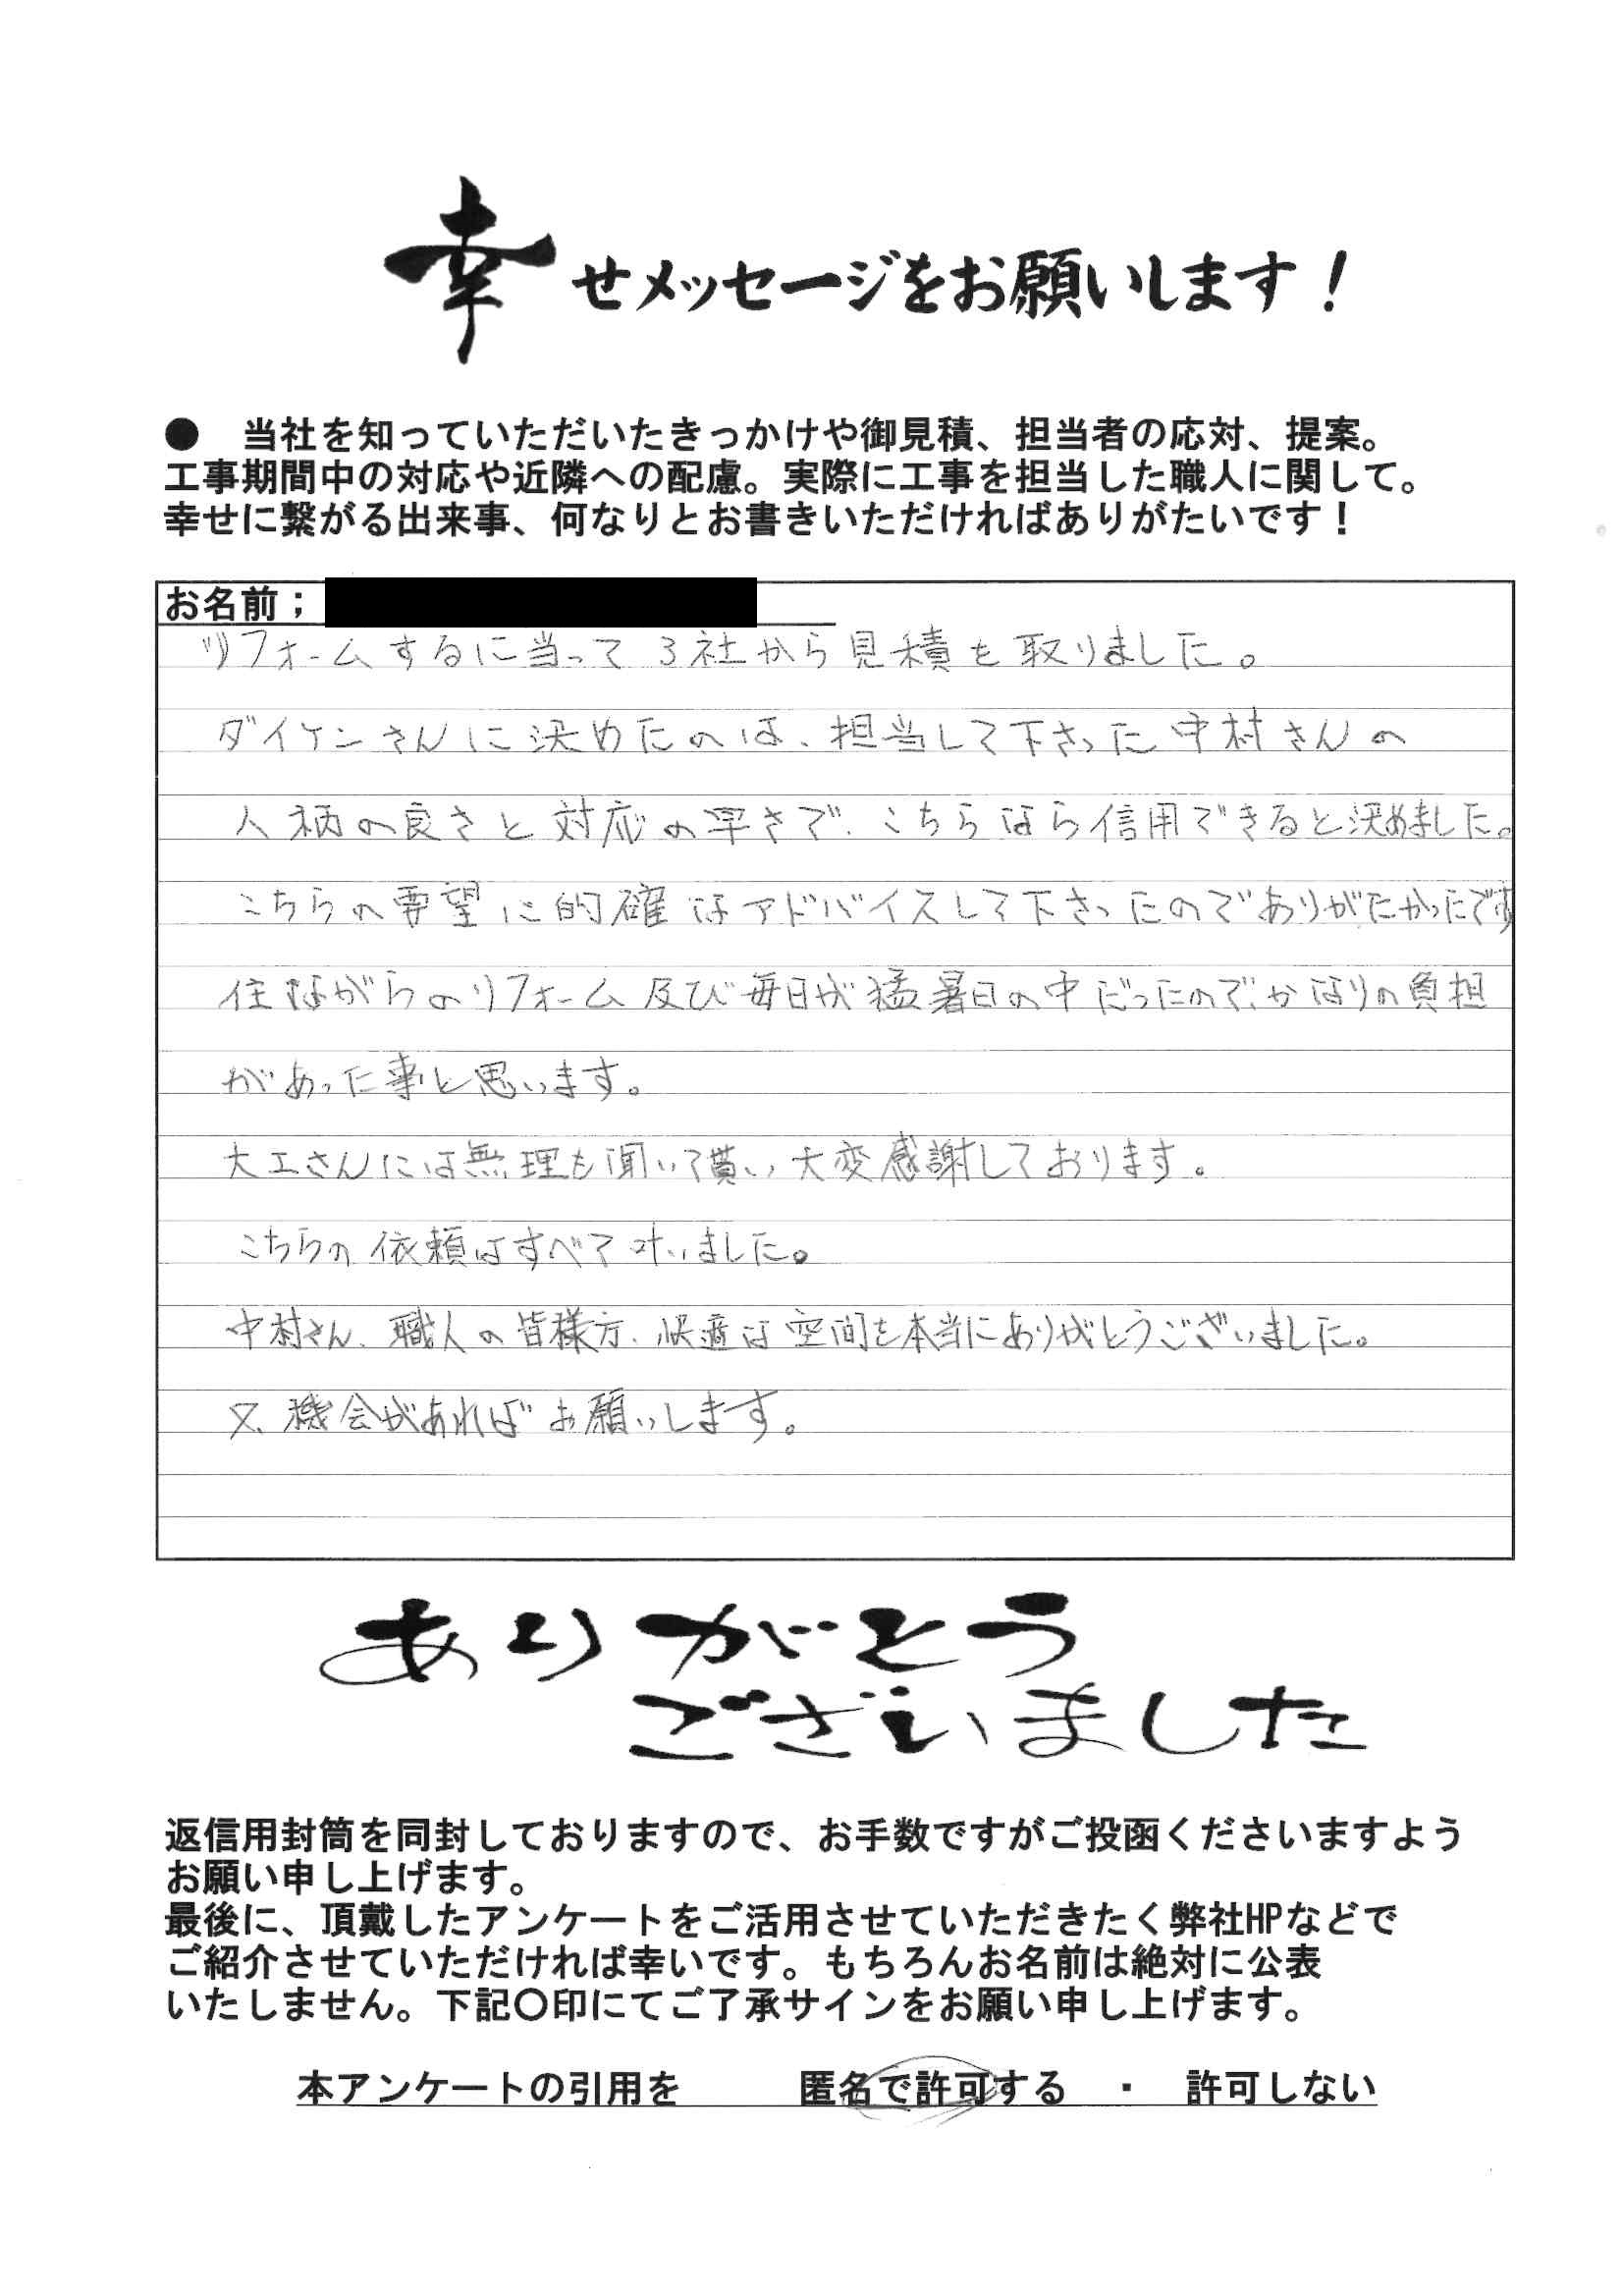 幸せメッセージをお願いします!
● 当社を知っていただいたきっかけや御見積、担当者の応対、提案。
工事期間中の対応や近隣への配慮。実際に工事を担当した職人に関して。
幸せに繋がる出来事、何なりとお書きいただければありがたいです!
お名前;
リフォームするに当って3社から見積を取りました。
ダイケンさんに決めたのは、担当して下さった中村さんの
人柄の良さと対応の早さで、こちらなら信用できると決めました。
こちらの要望に的確なアドバイスして下さったのでありがたかったです
住ながらのリフォーム及び毎日が猛暑日の中だったので、かなりの負担
があった事と思います。
大工さんには無理も聞いて貰い大変感謝しております。
こちらの依頼はすべて叶いました。
中村さん、職人の皆様方、快適な空間を本当にありがとうございました。
又、機会があればお願いします。
ありがとう
ございました
返信用封筒を同封しておりますので、お手数ですがご投函くださいますよう
お願い申し上げます。
最後に、頂戴したアンケートをご活用させていただきたく弊社HPなどで
ご紹介させていただければ幸いです。もちろんお名前は絶対に公表
いたしません。下記〇印にてご了承サインをお願い申し上げます。
本アンケートの引用を 匿名で許可する ・ 許可しない